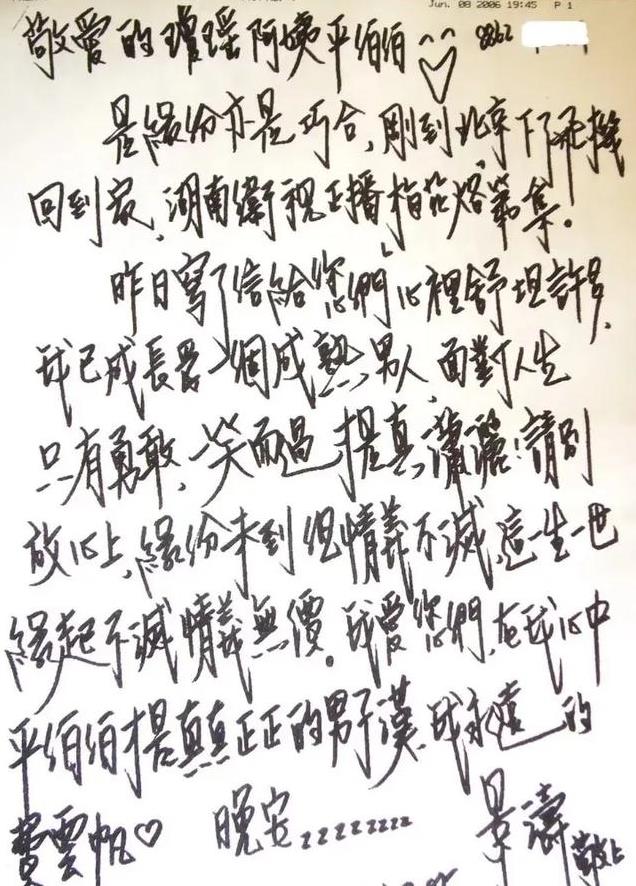 Jun. 08 2006 19:45 P 1
敬愛的瓊瑤阿姨平伯伯^^ 8862
是緣份亦是巧合,剛到北京下了飛機
回到家,湖南衛視正播椅第集。
昨日寫了信給您們心裡舒坦許多,
我已成長為一個成熟男人,面對人生
只有勇敢,一笑而過才是真瀟灑!請別
放心上,緣份未到但情義不滅,這一生一世
緣起不滅情義無價。我愛您們,在我心中
平伯伯才是真真正正的男子漢,我永遠的
費雲帆♡ 晚安zzzzzzzz 景濤敬上